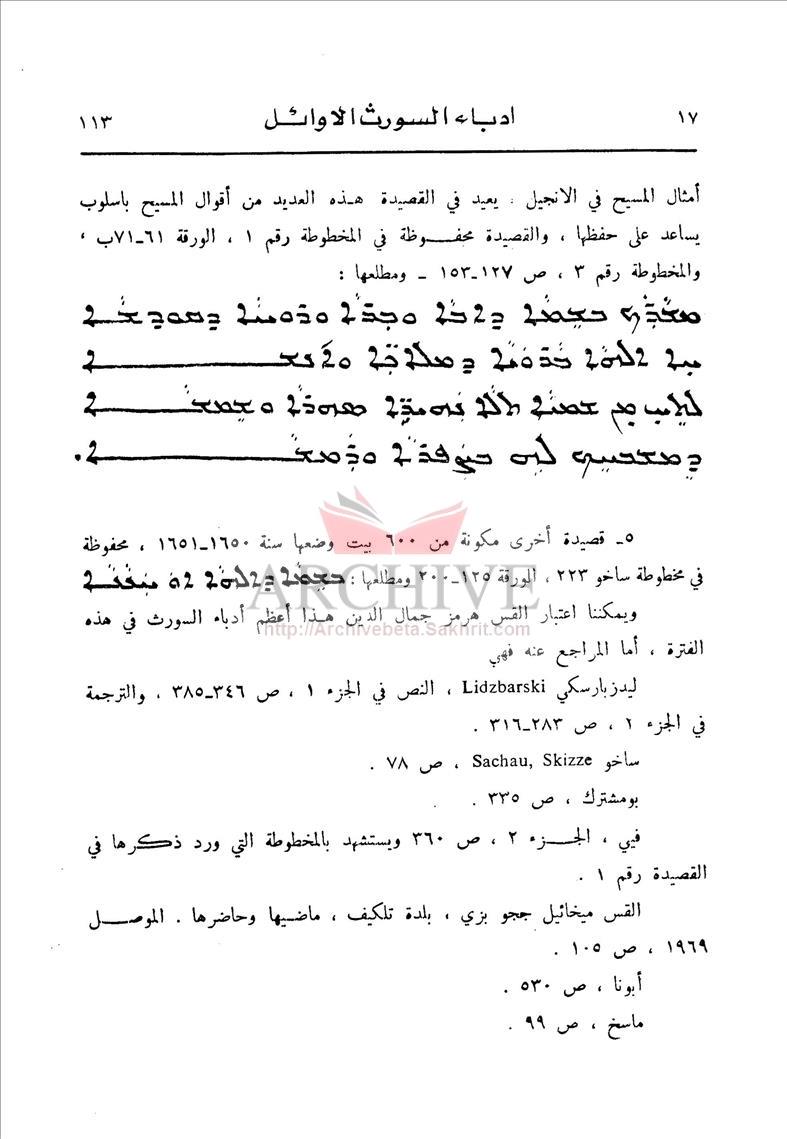 ١٧ ادباء السورث الاوائل ١١٣
أمثال المسيح في الانجيل . يعيد في القصيدة هذه العديد من أقوال المسيح باسلوب
يساعد على حفظها ، والقصيدة محفوظة في المخطوطة رقم ١ ، الورقة ٦١ـ٧١ب ،
والمخطوطة رقم ٣ ، ص ١٢٧ـ١٥٣ ـ ومطلعها :
ܒܫܡܐ ܕܐܒܐ ܘܒܪܐ ܘܪܘܚܐ ܕܩܘܕܫܐ
ܚܕ ܐܠܗܐ
ܡܢ ܫܡܝܐ
٥ـ قصيدة أخرى مكونة من ٦٠٠ بيت وضعها سنة ١٦٥٠ـ١٦٥١ ، محفوظة
في مخطوطة ساخو ٢٢٣ ، الورقة ١٢٥ـ٢٠٠ ومطلعها : ܒܫܡܐ ܕܐܠܗܐ ܗܘ ܚܢܢܐ
ARCHIVE
ويمكننا اعتبار القس هرمز جمال الدين هذا أعظم أدباء السورث في هذه
http://Archivebeta.Sakhrit.com
الفترة ، أما المراجع عنه فهي
ليدزبارسكي Lidzbarski ، النص في الجزء ١ ، ص ٣٤٦ـ٣٨٥ ، والترجمة
في الجزء ٢ ، ص ٢٨٣ـ٣١٦ .
ساخو Sachau, Skizze ، ص ٧٨ .
بومشترك ، ص ٣٣٥ .
فيي ، الجزء ٢ ، ص ٣٦٠ ويستشهد بالمخطوطة التي ورد ذكرها في
القصيدة رقم ١ .
القس ميخائيل ججو بزي ، بلدة تلكيف ، ماضيها وحاضرها . الموصل
١٩٦٩ ، ص ١٠٥ .
أبونا ، ص ٥٣٠ .
ماسخ ، ص ٩٩ .